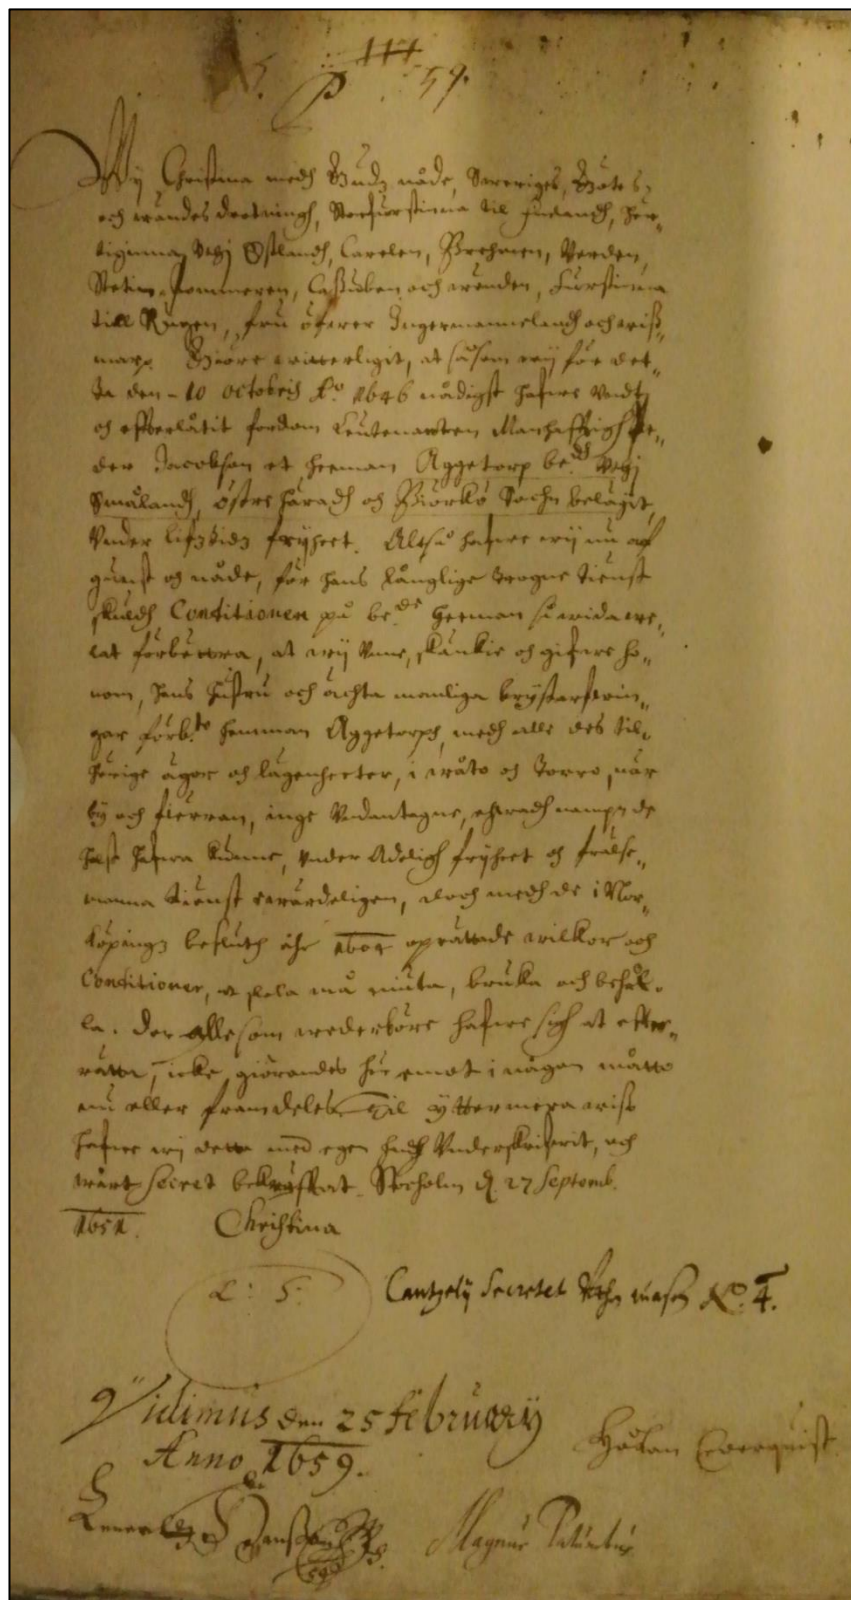 P 59.
Wy Christina medh Gudz nåde, Sweriges, Götes,
och Wändes drotningh, Storfurstinna til Finlandh, Her-
tiginna Vthj Estlandh, Carelen, Brehmen, Verden,
Stetin-Pommeren, Cassuben och Wenden, Furstinna
till Rügen, fru öfwer Ingermannelandh och Wiss-
mar. Giöre witterligit, at såsom wij för det-
ta den 10 Octobris A:o 1646 nådigst hafwe Vndt
och effterlåtit fordom Leutenanten Manhafftigh Pe-
der Jacobsson et heeman Aggetorp be:dh Vthj
Smålandh, östre häradh och Biörkö Sochn belägit,
Vnder lifztidz frijheet. Altså hafwe wij nu af
gunst och nåde, för hans långlige trogne tienst
skuldh, Conditionen på be:de heeman så wida we-
lat förbättra, at wij Vnne, skänkie och gifwe ho-
nom, hans hustru och ächta manliga bröstarfwin-
gar förb:te hemman Aggetorph, medh alle des til-
hörige ägor och lägenheeter, i wåto och torro, när
by och fierran, inge Vndantagne, ehwadh nampn de
helst hafwa kunne, Vnder Adeligh frijheet och frälse-
manna tienst ewärdeligen, doch medh de i Nor-
köpingz besluth åhr 1604 oprättade wilkor och
Conditioner, at niuta, bruka och behål-
la. Der alle som wederböre hafwe sigh at effter-
rätta, icke giörandes här emot i någon måtto
nu eller framdeles. Til yttermera wiss
hafwe wij dette med egen handh Vnderskrifwit, och
wårt Secret bekräfftat. Stocholm d. 27 Septemb.
1651. Christina
L: S: Cantzely Secretet N:o 4.
Vidimus den 25 February
Anno 1659.
Håkan
Magnus